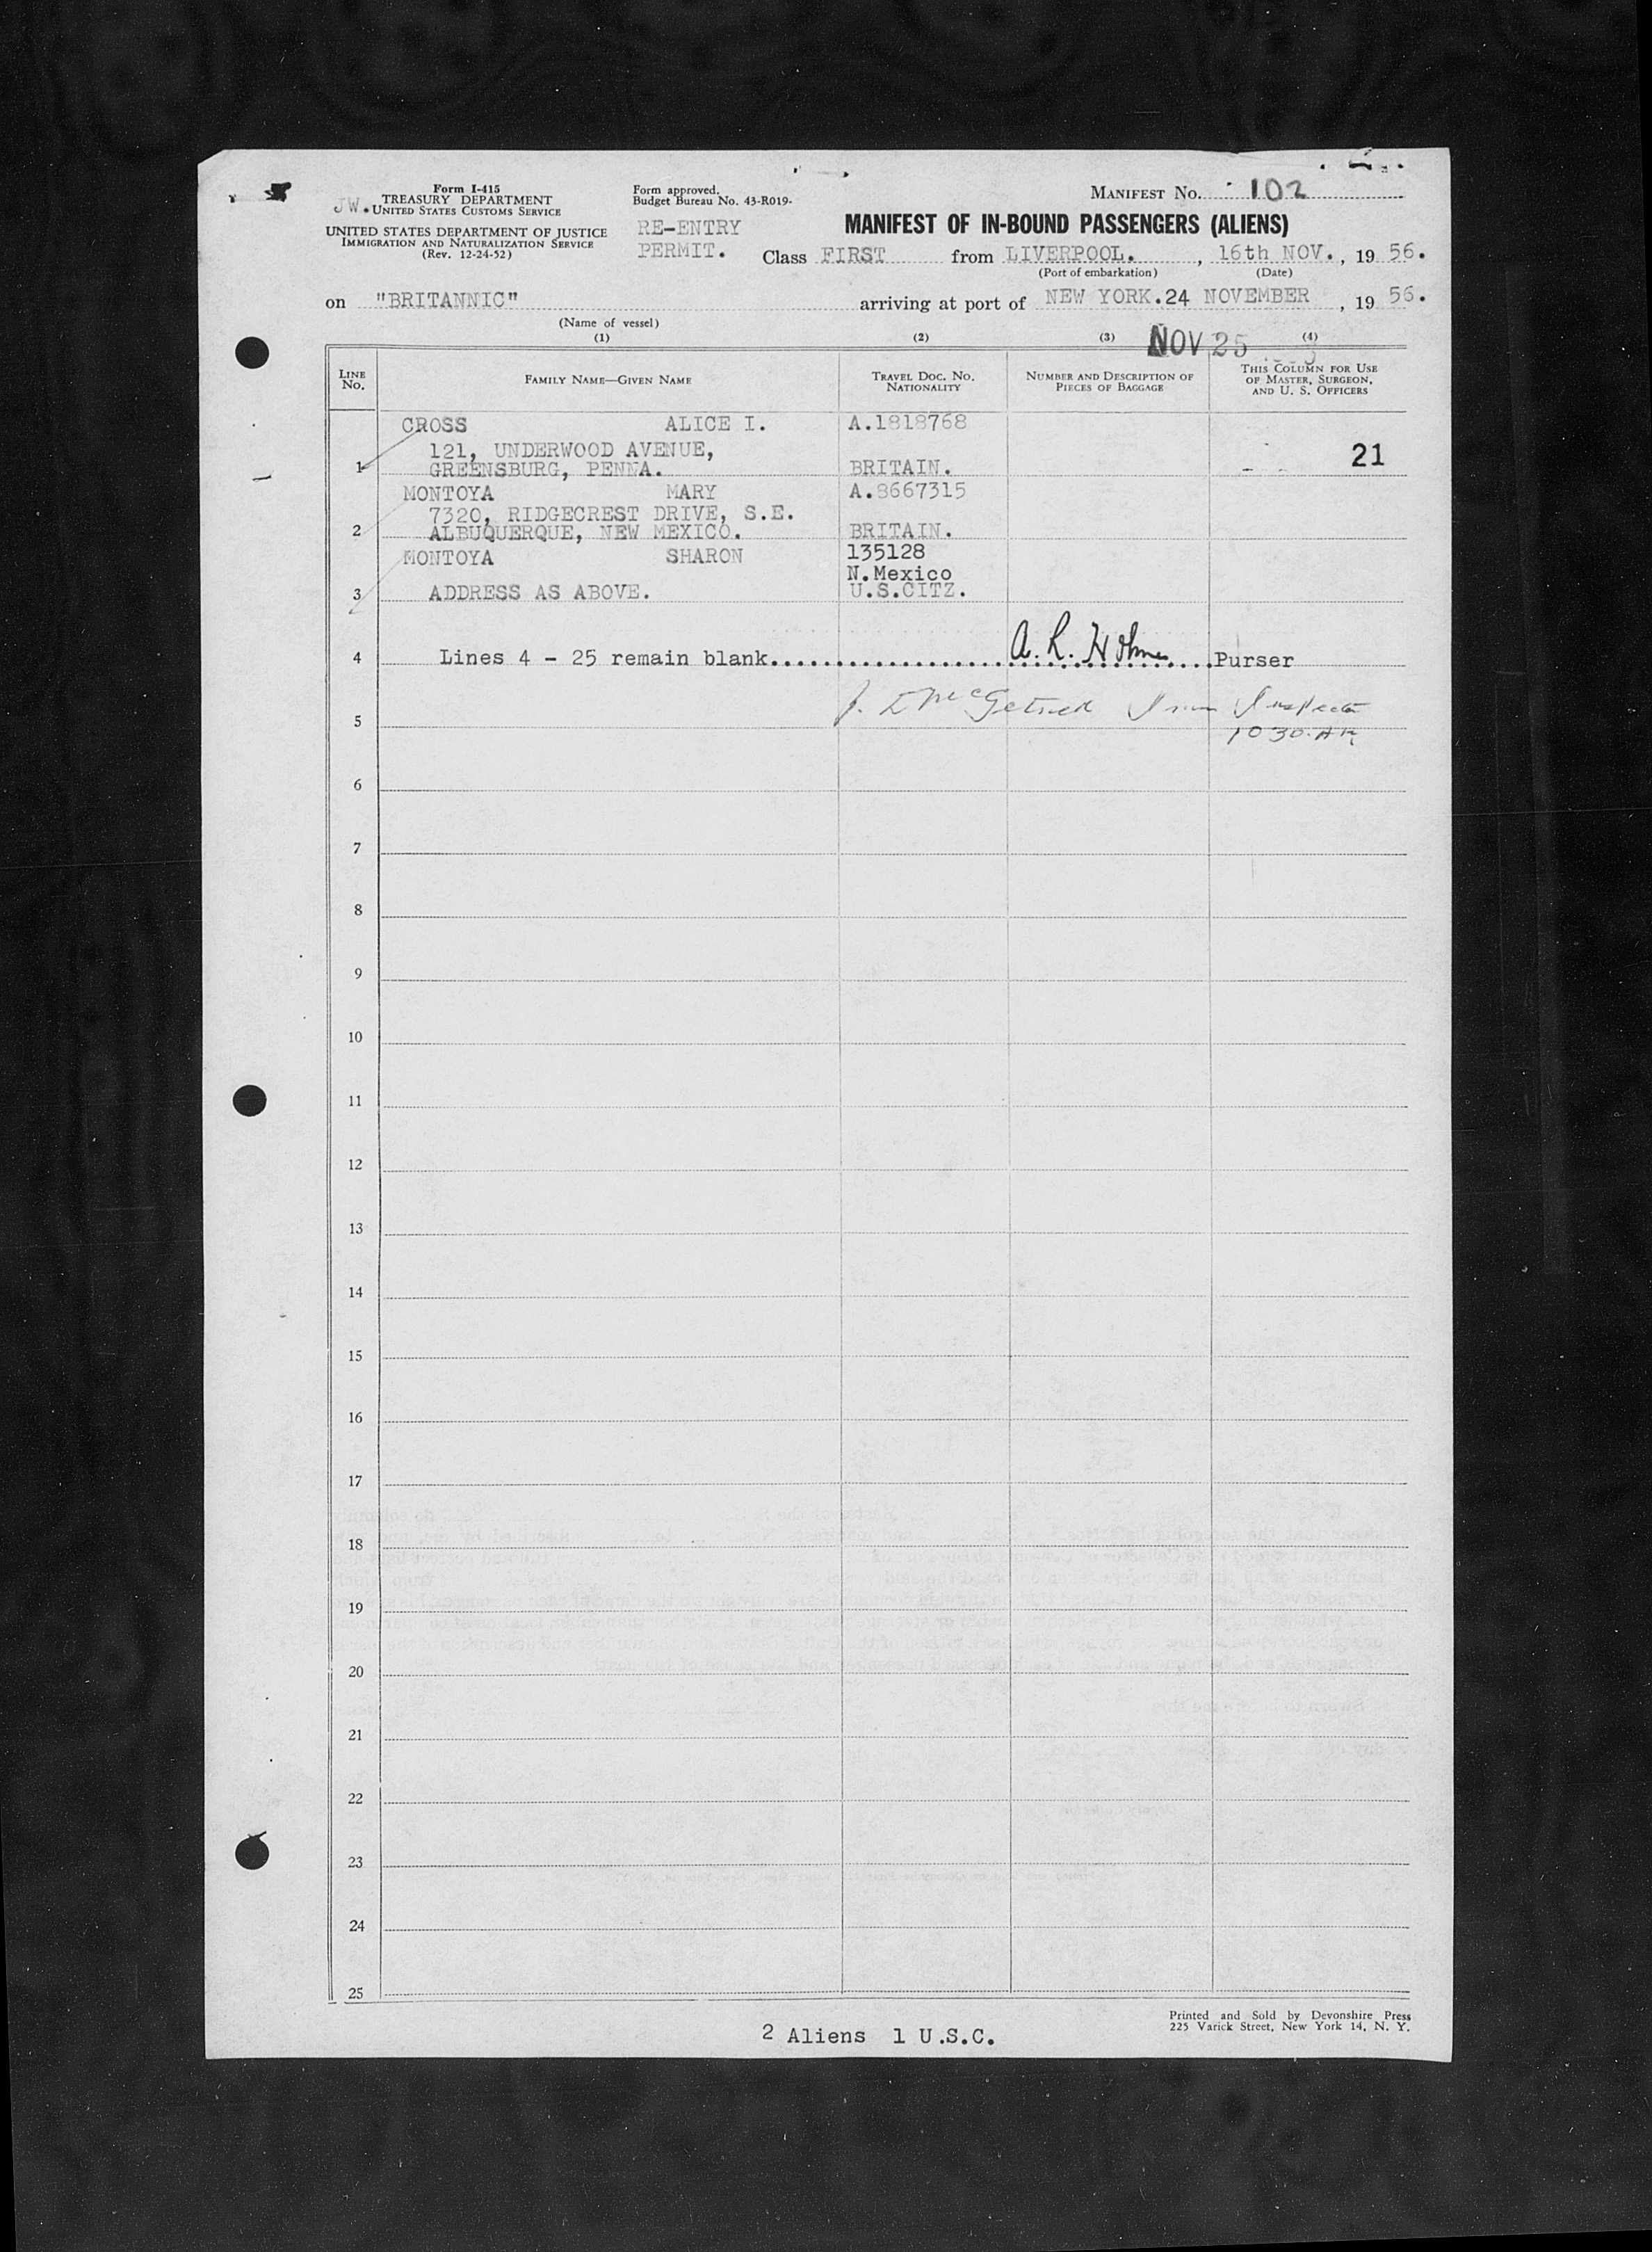 Form I-415
TREASURY DEPARTMENT
JW. UNITED STATES CUSTOMS SERVICE
UNITED STATES DEPARTMENT OF JUSTICE
IMMIGRATION AND NATURALIZATION SERVICE
(Rev. 12-24-52)
Form approved.
Budget Bureau No. 43-R019.
RE-ENTRY
PERMIT.
MANIFEST NO. 102
MANIFEST OF IN-BOUND PASSENGERS (ALIENS)
Class FIRST from LIVERPOOL. , 16th NOV. , 19 56.
(Port of embarkation) (Date)
on "BRITANNIC" arriving at port of NEW YORK. 24 NOVEMBER , 19 56.
(Name of vessel)
(1) (2) (3) NOV 25 (4)
LINE No. FAMILY NAME—GIVEN NAME TRAVEL DOC. NO. NATIONALITY NUMBER AND DESCRIPTION OF PIECES OF BAGGAGE THIS COLUMN FOR USE OF MASTER, SURGEON, AND U. S. OFFICERS
CROSS ALICE I. A.1818768
121, UNDERWOOD AVENUE,
1 GREENSBURG, PENNA. BRITAIN. 21
MONTOYA MARY A.8667315
7320, RIDGECREST DRIVE, S.E.
2 ALBUQUERQUE, NEW MEXICO. BRITAIN.
MONTOYA SHARON 135128
N.Mexico
3 ADDRESS AS ABOVE. U.S.CITZ.
4 Lines 4 - 25 remain blank. A. R. Holme Purser
5 Inspector
10 30 AM
6
7
8
9
10
11
12
13
14
15
16
17
18
19
20
21
22
23
24
25
2 Aliens 1 U.S.C.
Printed and Sold by Devonshire Press
225 Varick Street, New York 14, N. Y.